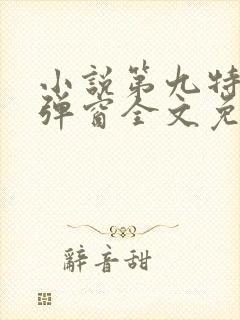 小説第九特
弹窗全文免
辭音甜